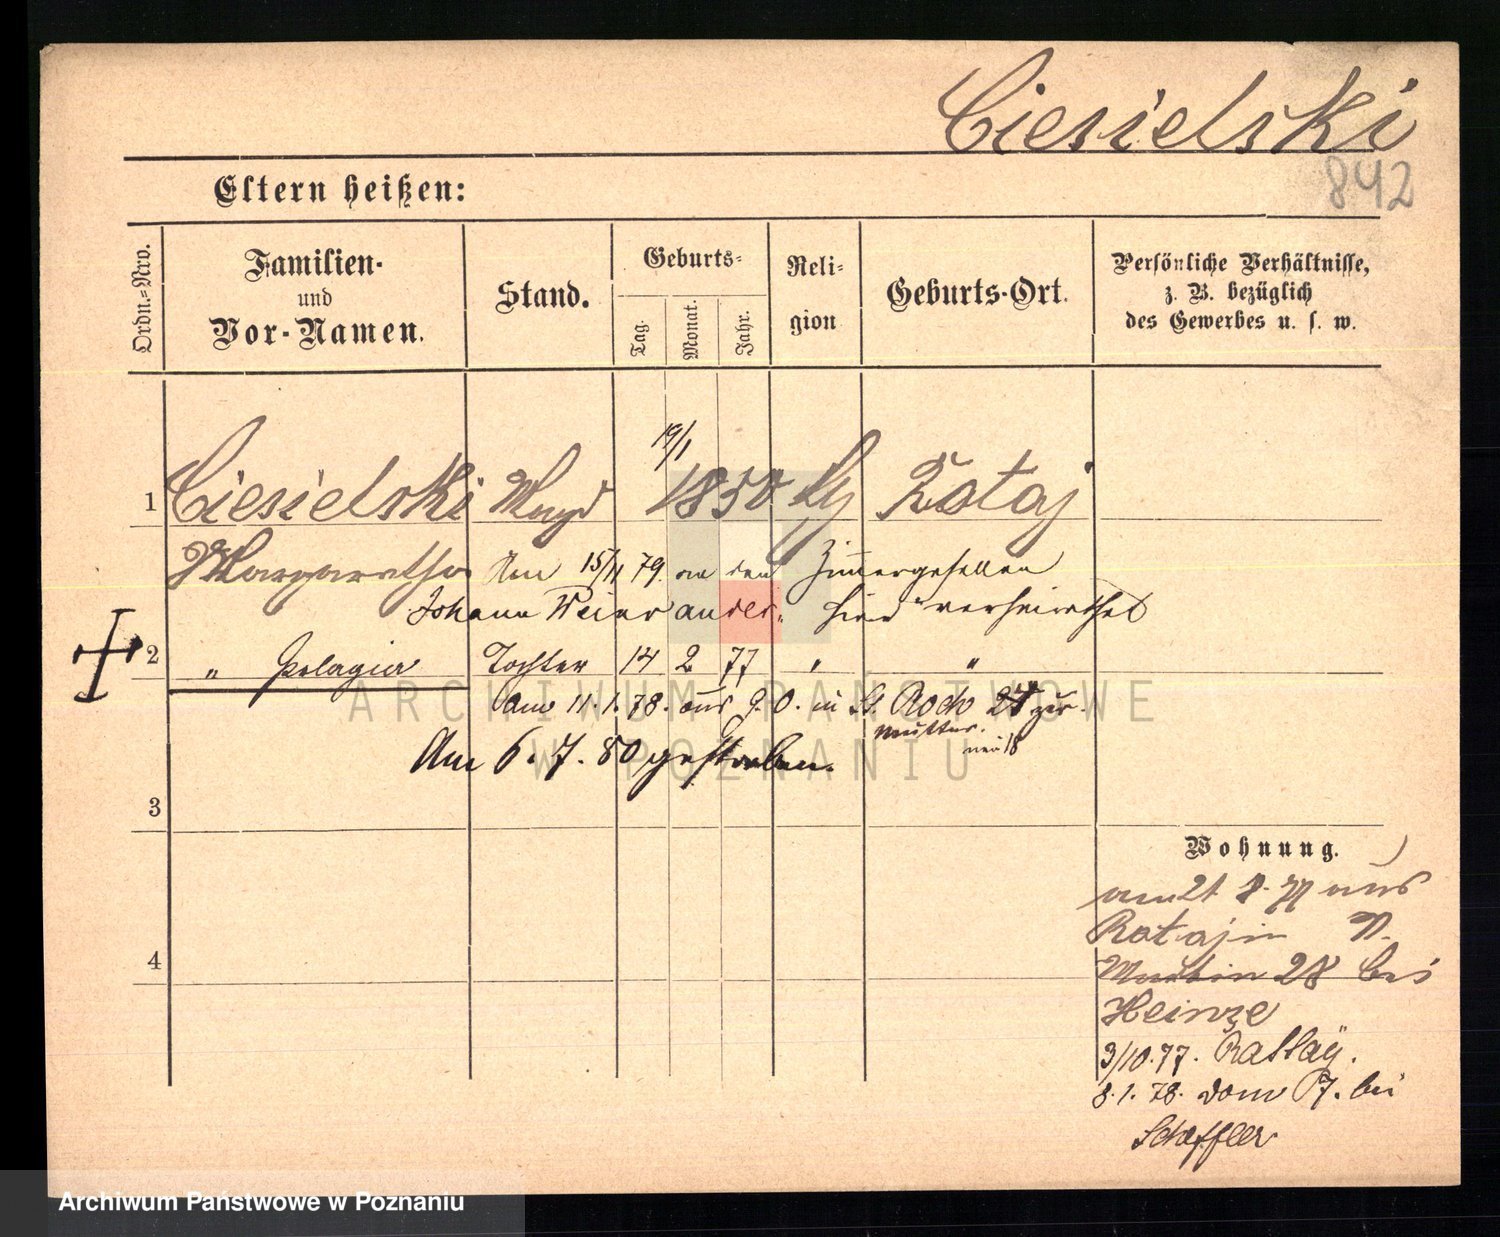 Ciesielski
842
Eltern heißen:
Ordn.-Nro.
Familien-
und
Vor-Namen.
Stand.
Geburts-
Tag.
Monat.
Jahr.
Reli-
gion
Geburts-Ort.
Persönliche Verhältnisse,
z. B. bezüglich
des Gewerbes u. s. w.
19/1
1 Ciesielski Magd 1850 Rataj
Margaretha Am 15/11 79 an den Zimmergesellen
Johann hier verheirathet
2 " Pelagia Tochter 14 2 77 " "
Am 11.1.78. aus g. O. in St. Roch zur
Mutter.
neu 18
Am 6.7.80 gestorben.
ARCHIWUM PAŃSTWOWE
W POZNANIU
3
4
Wohnung.
am 21 8.77 aus
Rataj in
Martin 28 bei
Heinze
3/10.77. Rattay.
8.1.78. Dom 17. bei
Scheffler
Archiwum Państwowe w Poznaniu